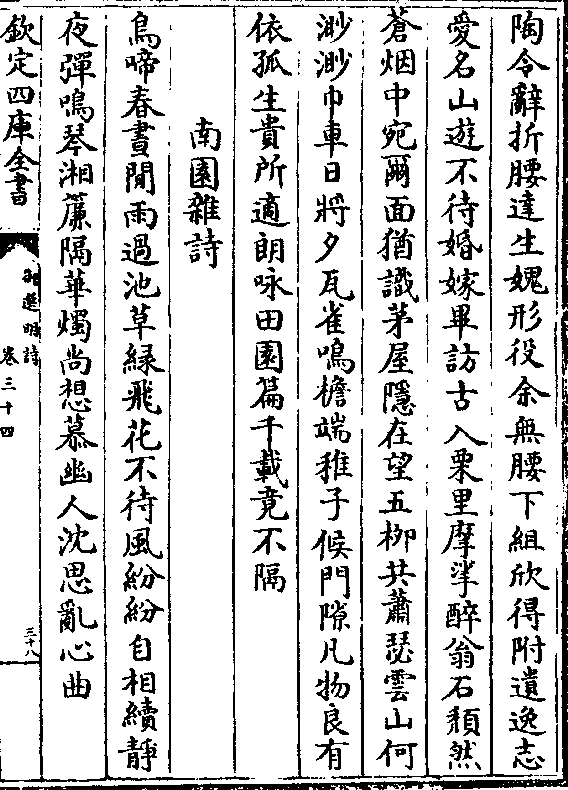 陶令辭折腰達生媿形役余無腰下組欣得附遺逸志
愛名山遊不待婚嫁畢訪古入栗里摩挲醉翁石頽然
蒼烟中宛爾面猶識茅屋隱在望五柳共蕭瑟雲山何
渺渺巾車日將夕瓦雀鳴檐端稚子候門隙凡物良有
依孤生貴所適朗咏田園篇千載竟不隔
南園雜詩
鳥啼春晝閒雨過池草緑飛花不待風紛紛自相續靜
夜彈鳴琴湘簾隔華燭尚想慕幽人沈思亂心曲
欽定四庫全書
御選明詩
卷三十四
三十八